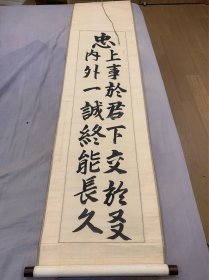 忠
上事於君下交於友
內外一誠終能長久